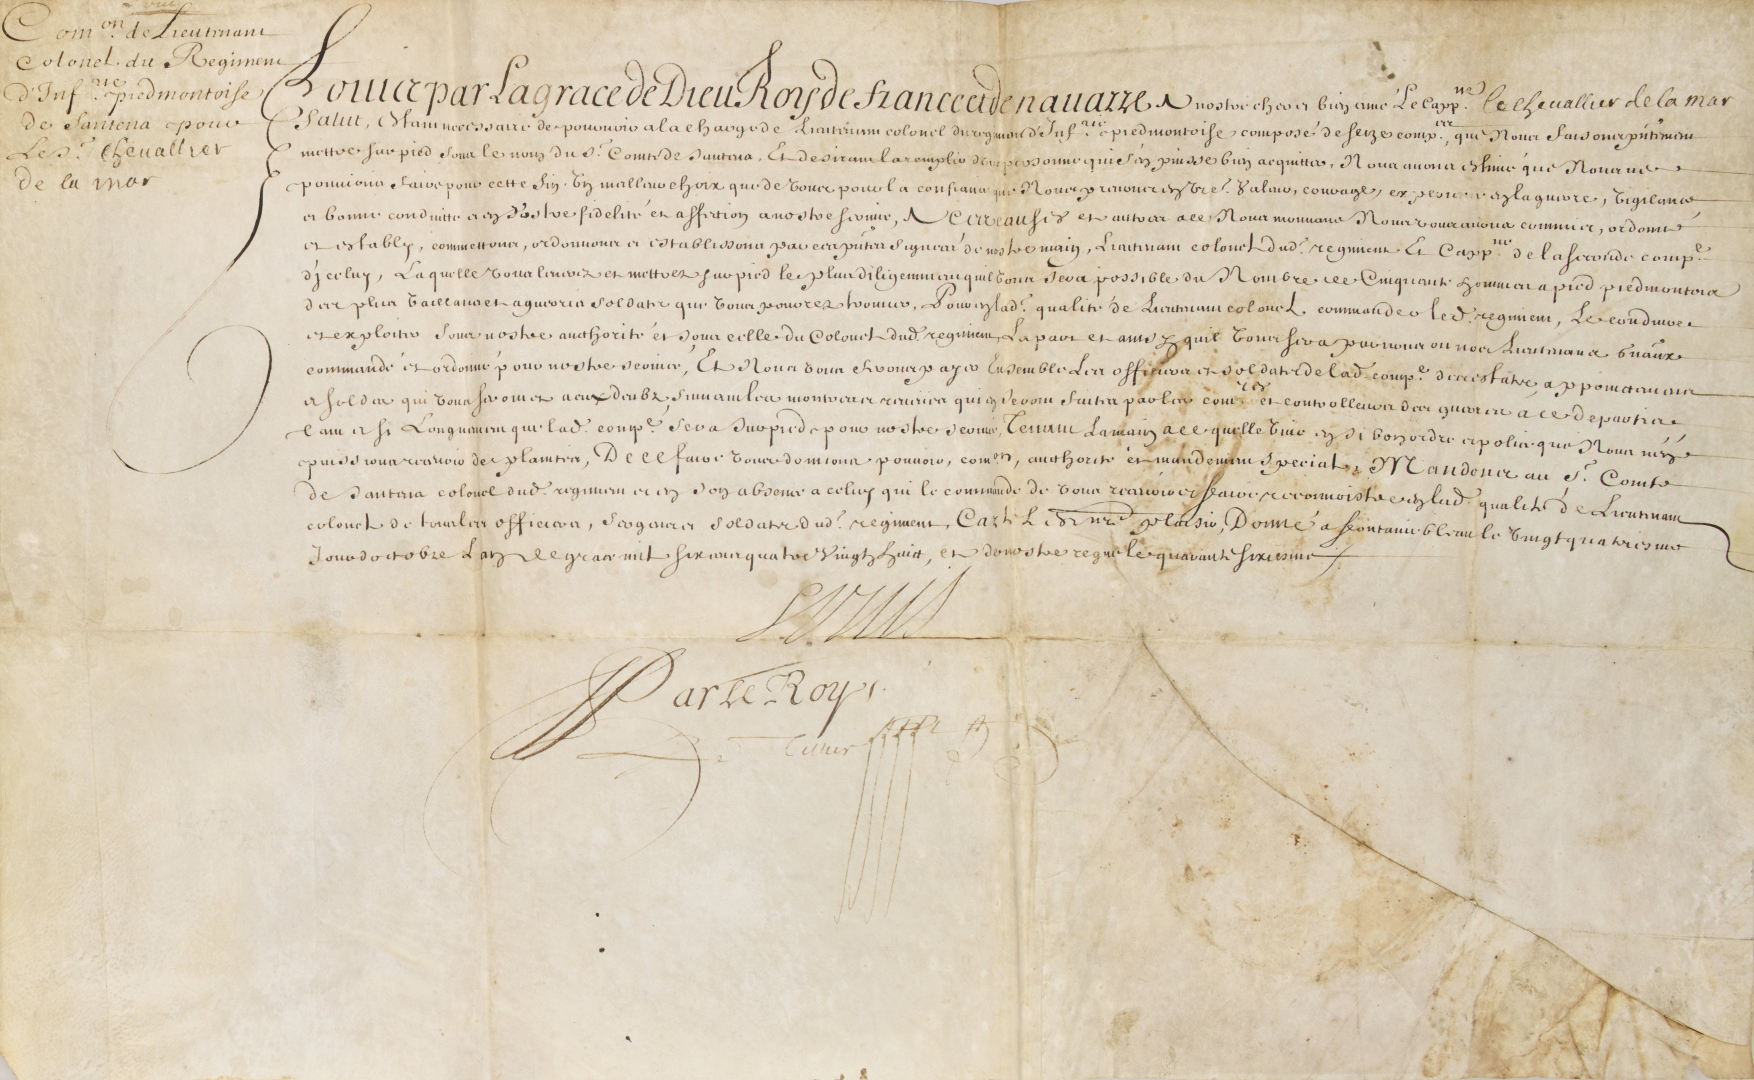 Com.on de Lieutenant
Colonel du Regiment
d'Inf.rie piedmontoise
de Santena pour
Le S.r chevallier
de la mar
Louis par La grace de Dieu Roy de france et de navarre A nostre cher et bien amé Le Capp.ne le chevallier de la mar
Salut, Estant necessaire de pourvoir a la charge de Lieutenant colonel du regiment d'Inf.rie piedmontoise composé de seize comp.es que Nous faisons p̄ntement
mettre sur pied sous le nom du S.r Comte de Santena, Et desirant la remplir d'une personne qui s'en puisse bien acquitter, Nous avons estimé que Nous ne
pouvions faire pour cette fin un meilleur choix que de vous pour la confiance que Nous prenons en vre. valeur, courage, experience en la guerre, vigilance
et bonne conduitte et en vostre fidelité et affection a nostre service, A ces causes et autres a ce Nous mouvans Nous vous avons commis, ordonné
et estably, commettons, ordonnons et establissons par ces p̄ntes signées de nostre main, Lieutenant colonel dud. regiment Et Capp.ne de la seconde comp.e
d'jcelluy, Laquelle vous leverez et mettrez sur pied le plus diligemment qu'il vous sera possible du Nombre de Cinquante hommes a pied piedmontois
des plus vaillans et aguerris soldats que vous pourrez trouver, Pour en lad. qualité de Lieutenant colonel commander led. regiment, Le conduire
et exploiter sous nostre authorité et sous celle du Colonel dud. regiment, La part et ainsy qu'il vous sera par nous ou nos Lieutenans gnaux
commandé et ordonné pour nostre service, Et Nous vous ferons payer Ensemble Les officiers et soldats de lad. comp.e des estats, appointemens
et soldes qui vous seront et a eux deubz suivant les monstres et reveues qui en seront faites par les com.res et controlleurs des guerres a ce departis
tant et si Longuement que lad. comp.e sera sur pied pour nostre service, Tenant La main a ce quelle vive en si bon ordre et police que Nous n'en
puissions recevoir de plaintes, De ce faire vous donnons pouvoir, com.on, authorité et mandement special, Mandons au S.r Comte
de Santena colonel dud. regiment et en son absence a celuy qui le commande de vous recevoir et faire reconnoistre en lad. qualité de Lieutenant
colonel de tous les officiers, sergens et soldats dud. regiment, Car tel est nre. plaisir, Donné a fontainebleau le vingt quatriesme
Jour d'octobre L'an de grace mil six cens quatre vingts huict, et de nostre regne le quarante sixiesme
Louis
Par le Roy